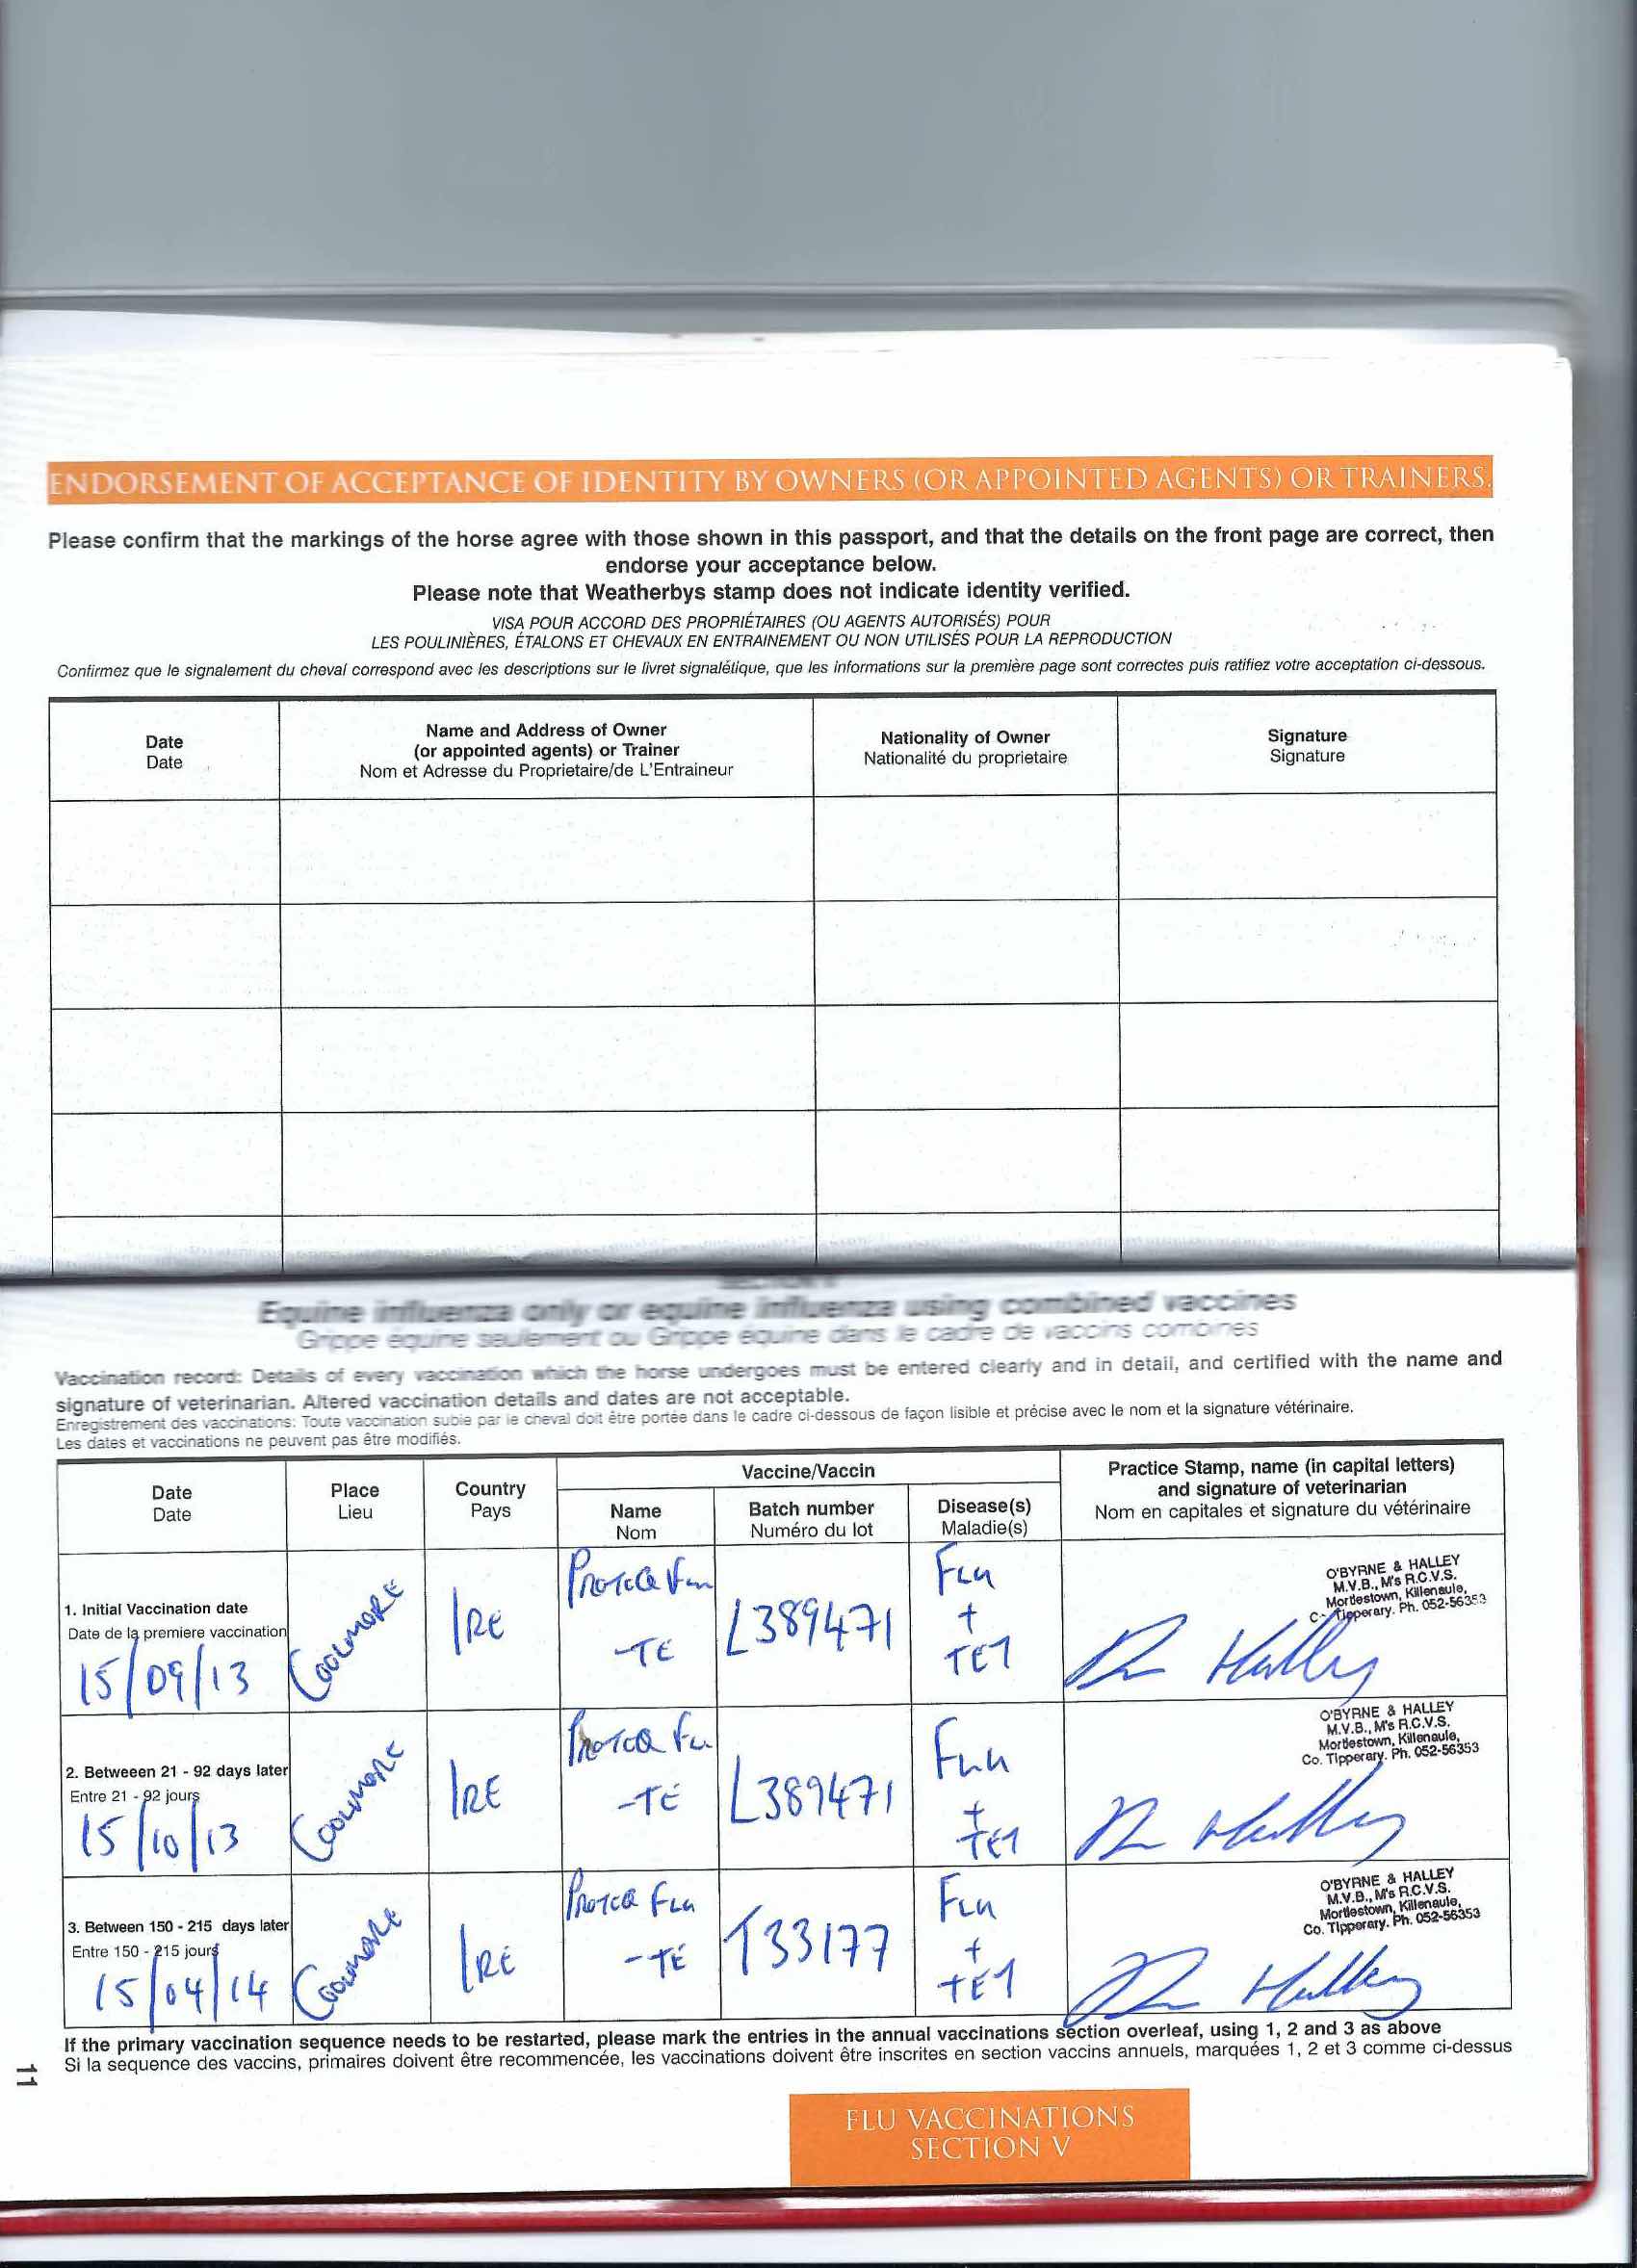 ENDORSEMENT OF ACCEPTANCE OF IDENTITY BY OWNERS (OR APPOINTED AGENTS) OR TRAINERS.
Please confirm that the markings of the horse agree with those shown in this passport, and that the details on the front page are correct, then
endorse your acceptance below.
Please note that Weatherbys stamp does not indicate identity verified.
VISA POUR ACCORD DES PROPRIÉTAIRES (OU AGENTS AUTORISÉS) POUR
LES POULINIÈRES, ÉTALONS ET CHEVAUX EN ENTRAINEMENT OU NON UTILISÉS POUR LA REPRODUCTION
Confirmez que le signalement du cheval correspond avec les descriptions sur le livret signalétique, que les informations sur la première page sont correctes puis ratifiez votre acceptation ci-dessous.
Date
Date
Name and Address of Owner
(or appointed agents) or Trainer
Nom et Adresse du Proprietaire/de L'Entraineur
Nationality of Owner
Nationalité du proprietaire
Signature
Signature
Equine influenza only or equine influenza using combined vaccines
Grippe équine seulement ou Grippe équine dans le cadre de vaccins combines
Vaccination record: Details of every vaccination which the horse undergoes must be entered clearly and in detail, and certified with the name and
signature of veterinarian. Altered vaccination details and dates are not acceptable.
Enregistrement des vaccinations: Toute vaccination subie par le cheval doit être portée dans le cadre ci-dessous de façon lisible et précise avec le nom et la signature vétérinaire.
Les dates et vaccinations ne peuvent pas être modifiés.
Date
Date
Place
Lieu
Country
Pays
Vaccine/Vaccin
Name
Nom
Batch number
Numéro du lot
Disease(s)
Maladie(s)
Practice Stamp, name (in capital letters)
and signature of veterinarian
Nom en capitales et signature du vétérinaire
1. Initial Vaccination date
Date de la premiere vaccination
15/09/13
COOLMORE
IRE
PROTEQ Flu
-TE
L389471
Flu
+
TET
O'BYRNE & HALLEY
M.V.B., M's R.C.V.S.
Mortlestown, Killenaule,
Co. Tipperary. Ph. 052-56353
Halley
2. Betweeen 21 - 92 days later
Entre 21 - 92 jours
15/10/13
COOLMORE
IRE
PROTEQ Flu
-TE
L389471
Flu
+
TET
O'BYRNE & HALLEY
M.V.B., M's R.C.V.S.
Mortlestown, Killenaule,
Co. Tipperary. Ph. 052-56353
Halley
3. Between 150 - 215 days later
Entre 150 - 215 jours
15/04/14
COOLMORE
IRE
PROTEQ FLu
-TE
T33177
Flu
+
TET
O'BYRNE & HALLEY
M.V.B., M's R.C.V.S.
Mortlestown, Killenaule,
Co. Tipperary. Ph. 052-56353
Halley
If the primary vaccination sequence needs to be restarted, please mark the entries in the annual vaccinations section overleaf, using 1, 2 and 3 as above
Si la sequence des vaccins, primaires doivent être recommencée, les vaccinations doivent être inscrites en section vaccins annuels, marquées 1, 2 et 3 comme ci-dessus
11
FLU VACCINATIONS
SECTION V